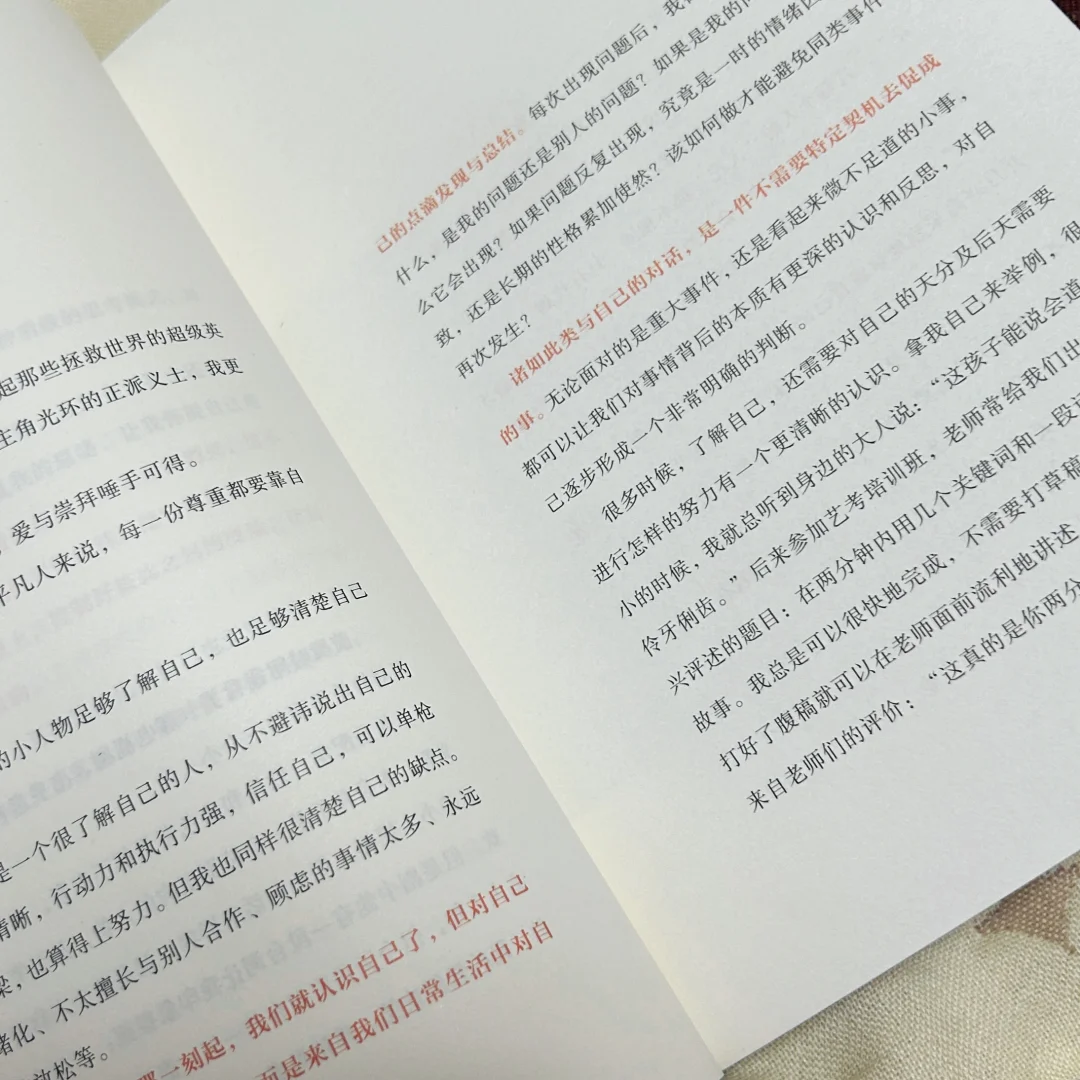 起那些拯救世界的超级英
主角光环的正派义士，我更
，爱与崇拜唾手可得。
平凡人来说，每一份尊重都要靠自
的小人物足够了解自己，也足够清楚自己
是一个很了解自己的人，从不避讳说出自己的
清晰，行动力和执行力强，信任自己，可以单枪
梁，也算得上努力。但我也同样很清楚自己的缺点。
绪化、不太擅长与别人合作、顾虑的事情太多、永远
放松等。
那一刻起，我们就认识自己了，但对自己
而是来自我们日常生活中对自
己的点滴发现与总结。每次出现问题后，我们
什么，是我的问题还是别人的问题？如果是我的问
么它会出现？如果问题反复出现，究竟是一时的情绪因
致，还是长期的性格累加使然？该如何做才能避免同类事件
再次发生？
诸如此类与自己的对话，是一件不需要特定契机去促成
的事。无论面对的是重大事件，还是看起来微不足道的小事，
都可以让我们对事情背后的本质有更深的认识和反思，对自
己逐步形成一个非常明确的判断。
很多时候，了解自己，还需要对自己的天分及后天需要
进行怎样的努力有一个更清晰的认识。拿我自己来举例，很
小的时候，我就总听到身边的大人说：“这孩子能说会道
伶牙俐齿。”后来参加艺考培训班，老师常给我们出
兴评述的题目：在两分钟内用几个关键词和一段
故事。我总是可以很快地完成，不需要打草稿
打好了腹稿就可以在老师面前流利地讲述
来自老师们的评价：“这真的是你两分